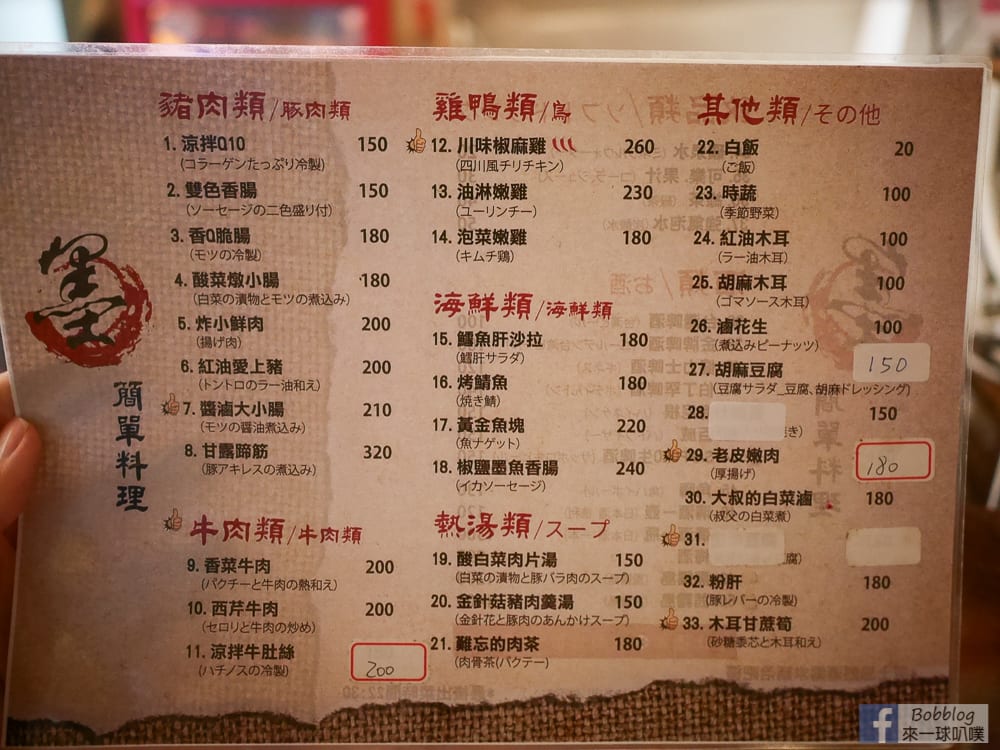 豬肉類/豚肉類
1. 涼拌Q10 150
(コラーゲンたっぷり冷製)
2. 雙色香腸 150
(ソーセージの二色盛り付)
3. 香Q脆腸 180
(モツの冷製)
4. 酸菜燉小腸 180
(白菜の漬物とモツの煮込み)
5. 炸小鮮肉 200
(揚げ肉)
6. 紅油愛上豬 200
(トントロのラー油和え)
7. 醬滷大小腸 210
(モツの醤油煮込み)
8. 甘露蹄筋 320
(豚アキレスの煮込み)
牛肉類/牛肉類
9. 香菜牛肉 200
(パクチーと牛肉の熱和え)
10. 西芹牛肉 200
(セロリと牛肉の炒め)
11. 涼拌牛肚絲 200
(ハチノスの冷製)
雞鴨類/鳥
12. 川味椒麻雞 260
(四川風チリチキン)
13. 油淋嫩雞 230
(ユーリンチー)
14. 泡菜嫩雞 180
(キムチ鶏)
海鮮類/海鮮類
15. 鱈魚肝沙拉 180
(鱈肝サラダ)
16. 烤鯖魚 180
(焼き鯖)
17. 黃金魚塊 220
(魚ナゲット)
18. 椒鹽墨魚香腸 240
(イカソーセージ)
熱湯類/スープ
19. 酸白菜肉片湯 150
(白菜の漬物と豚バラ肉のスープ)
20. 金針菇豬肉羹湯 150
(金針花と豚肉のあんかけスープ)
21. 難忘的肉茶 180
(肉骨茶(パクテー)
其他類/その他
22. 白飯 20
(ご飯)
23. 時蔬 100
(季節野菜)
24. 紅油木耳 100
(ラー油木耳)
25. 胡麻木耳 100
(ゴマソース木耳)
26. 滷花生 100
(煮込みピーナッツ)
27. 胡麻豆腐 150
(豆腐サラダ_豆腐、胡麻ドレッシング)
28. 150
き)
29. 老皮嫩肉 180
(厚揚げ)
30. 大叔的白菜滷 180
(叔父の白菜煮)
31.
腐)
32. 粉肝 180
(豚レバーの冷製)
33. 木耳甘蔗筍 200
(砂糖黍芯と木耳和え)
墨
簡單料理
Bobblog
來一球叭噗